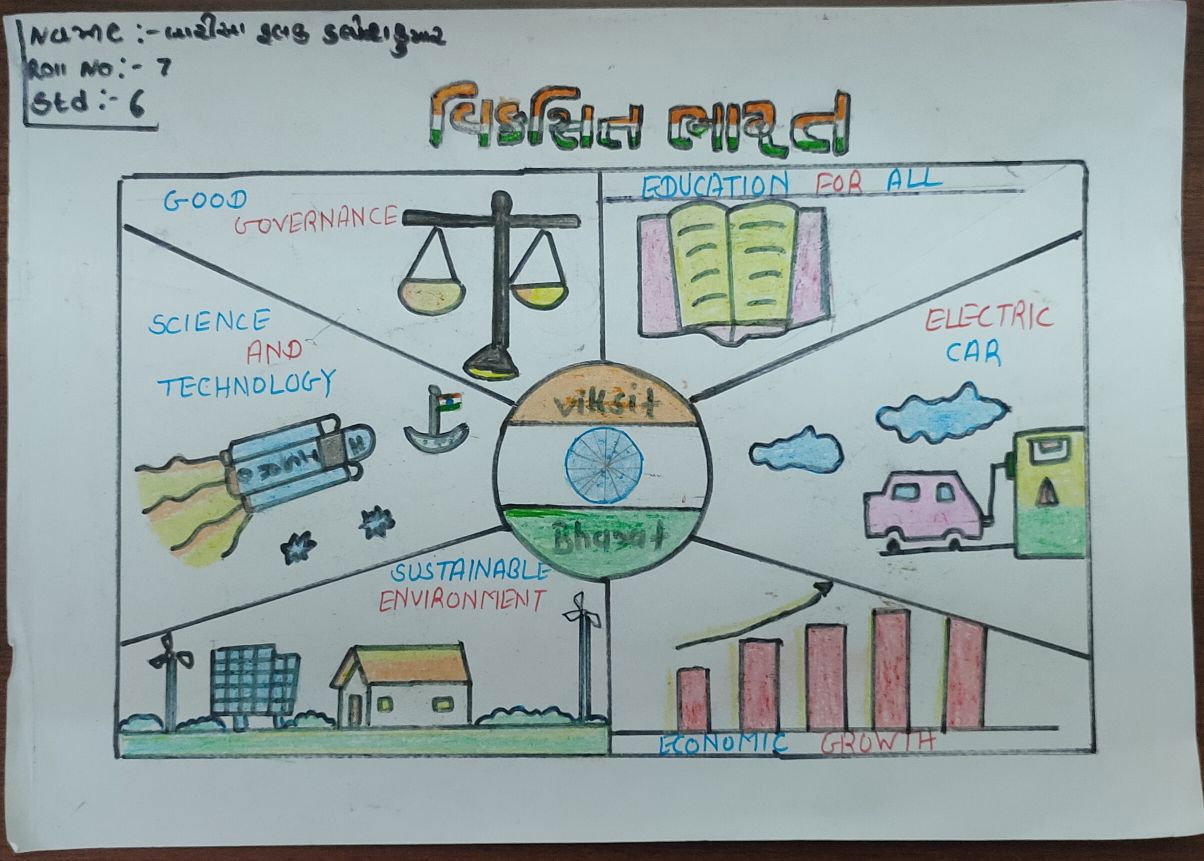 Name :-
Roll No :- 7
Std :- 6
વિકસિત ભારત
GOOD
GOVERNANCE
EDUCATION FOR ALL
SCIENCE
AND
TECHNOLOGY
ELECTRIC
CAR
Viksit
Bharat
SUSTAINABLE
ENVIRONMENT
ECONOMIC GROWTH